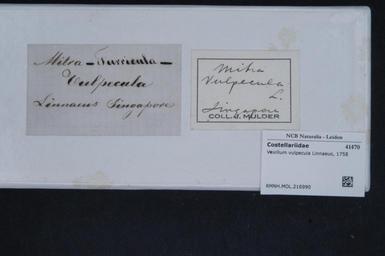 Mitra - Turricula -
Vulpecula
Linnaeus Singapore
Mitra
Vulpecula
L.
Singapore
COLL. J. MULDER
NCB Naturalis - Leiden
Costellariidae 41470
Vexillum vulpecula Linnaeus, 1758
RMNH.MOL.216990